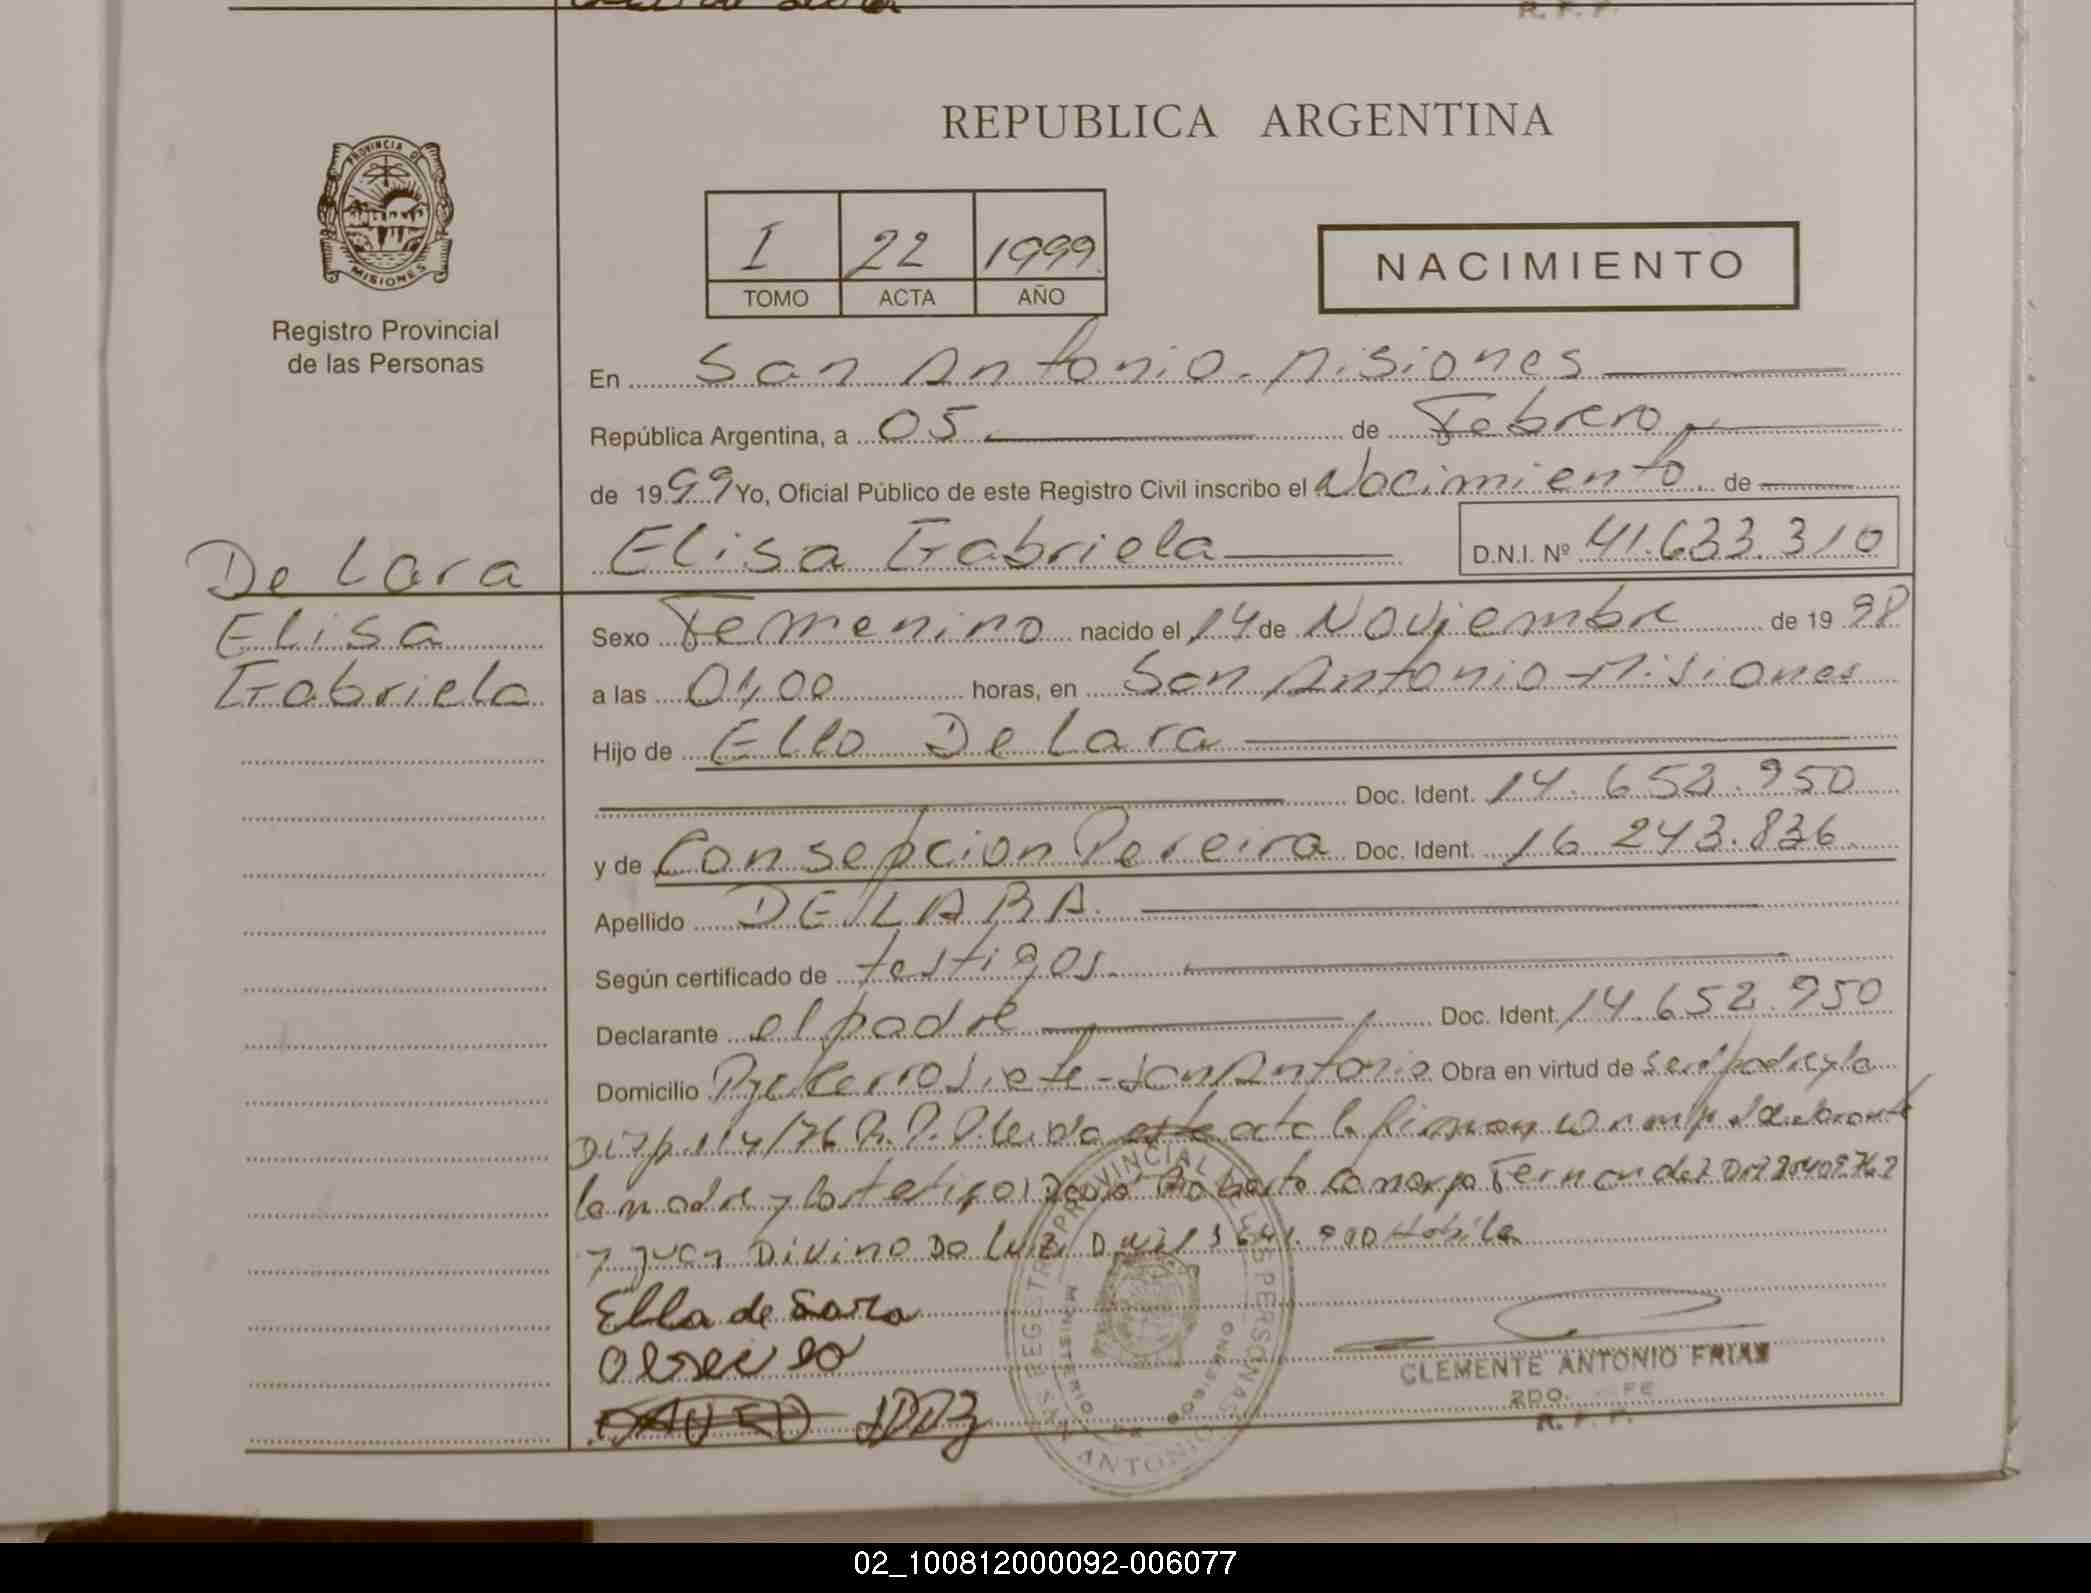 PROVINCIA DE
MISIONES
Registro Provincial
de las Personas
REPUBLICA ARGENTINA
I 22 1999
TOMO ACTA AÑO
NACIMIENTO
En San Antonio - Misiones
República Argentina, a 05 de Febrero
de 1999 Yo, Oficial Público de este Registro Civil inscribo el Nacimiento de
De Lara
Elisa Gabriela D.N.I. Nº 41.633.310
Elisa
Gabriela
Sexo Femenino nacido el 14 de Noviembre de 1998
a las 04,00 horas, en San Antonio - Misiones
Hijo de Ello De Lara
Doc. Ident. 14.652.950
y de Consepcion Pereira Doc. Ident. 16 243.836
Apellido DE LARA
Según certificado de testigos
Declarante el padre Doc. Ident. 14.652.950
Domicilio Pje Cerro Siete - San Antonio Obra en virtud de ser el padre y la
Disp. 114/76 R.P.P. Leida este acta la firman con migo el declarante
la madre y los testigos Roberto Fernandez
y Juan Divino Da Luz Habile
Ella de Lara
CLEMENTE ANTONIO FRIAS
2DO. JEFE
R. P. P.
REGISTRO PROVINCIAL DE LAS PERSONAS
MINISTERIO DE GOBIERNO
SAN ANTONIO
02_100812000092-006077